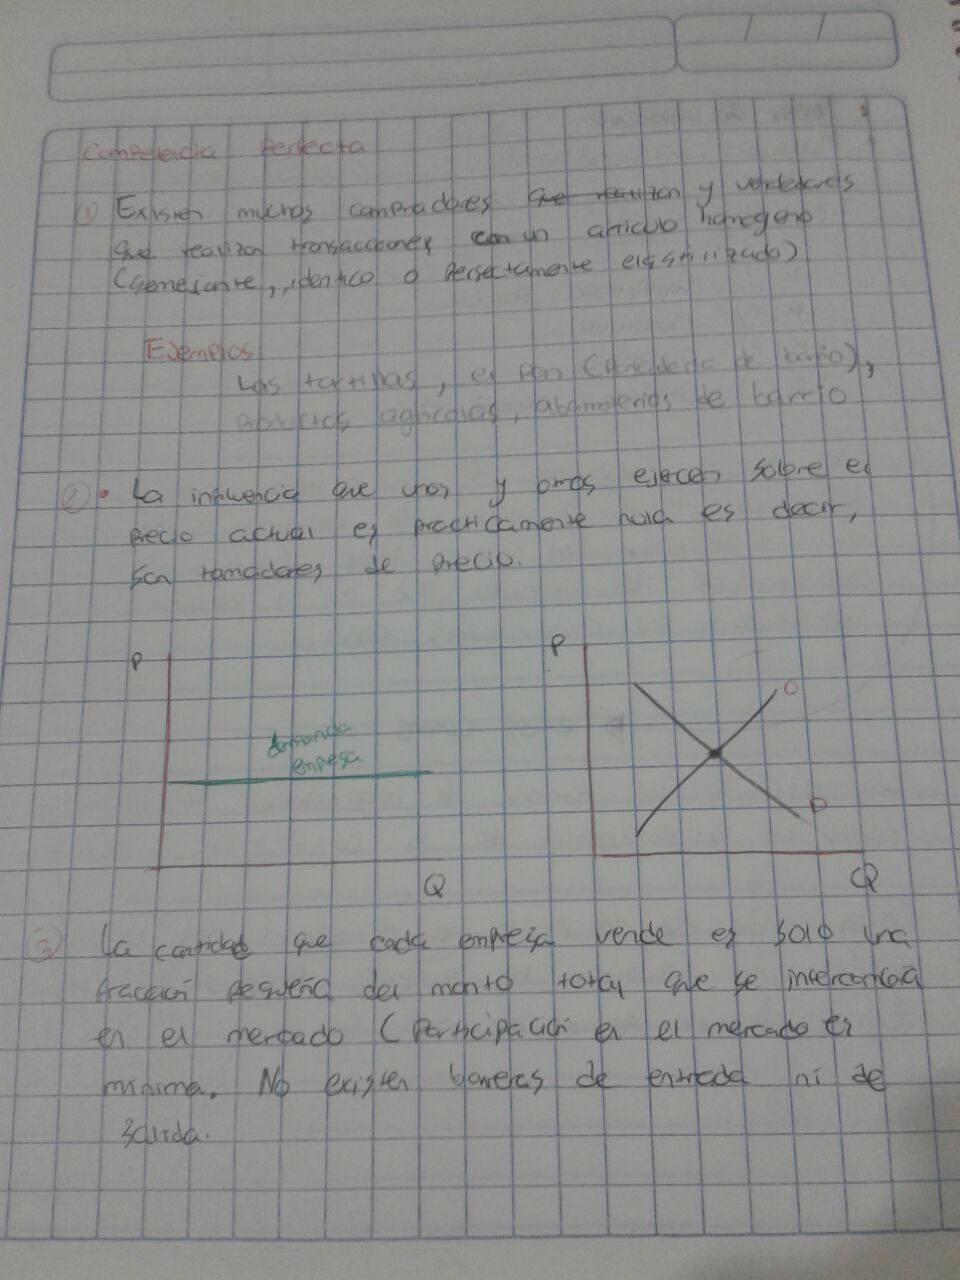 Competencia Perfecta
① Existen muchos compradores que realizan y vendedores
que realizan transacciones con un articulo homogeno
(semejante, identico o perfectamente
Ejemplos
Las tortillas, el pan (panaderia de barrio),
productos agricolas, abarroterias de barrio
② • La influencia que unos y otros ejercen sobre el
precio actual es practicamente nula es decir,
son tomadores de precio.
P
P
O
demanda
empresa
D
Q
Q
③ La cantidad que cada empresa vende es solo una
fracción pequeña del monto total que se intercambia
en el mercado (Participación en el mercado es
minima. No existen barreras de entrada ni de
salida.